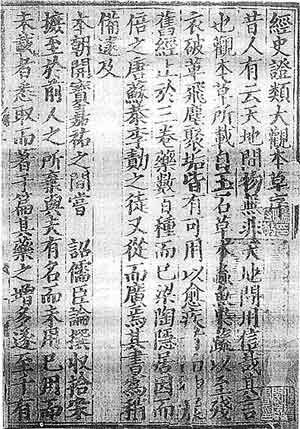 經史證類大觀本草序
昔人有云天地間物無非天地間用信哉其言
也觀本草所載自玉石草木蟲魚果蔬以至殘
衣破革飛塵聚垢皆有可用以愈疾
舊經止於三卷藥數百種而已梁陶隱居因而
倍之唐蘇恭李勣之徒又從而廣焉其書爲稍
備逮及
本朝開寶嘉祐之間嘗 詔儒臣論撰收拾采
摭至於前人之所棄與夫有名而未用已用而
未載者悉取而著于篇其藥之增多遂至千有